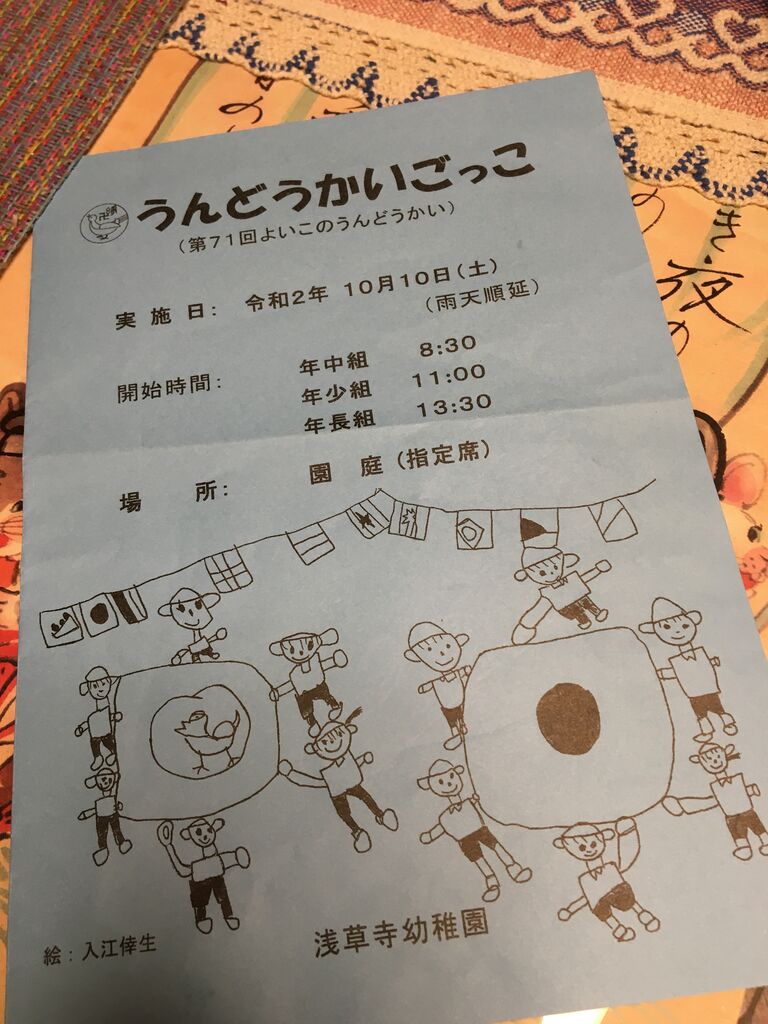 うんどうかいごっこ
（第７１回よいこのうんどうかい）
実 施 日： 令和２年 １０月１０日（土）
（雨天順延）
開始時間： 年中組 8:30
年少組 11:00
年長組 13:30
場 所： 園 庭（指定席）
絵：入江倖生
浅草寺幼稚園
き・夜
の